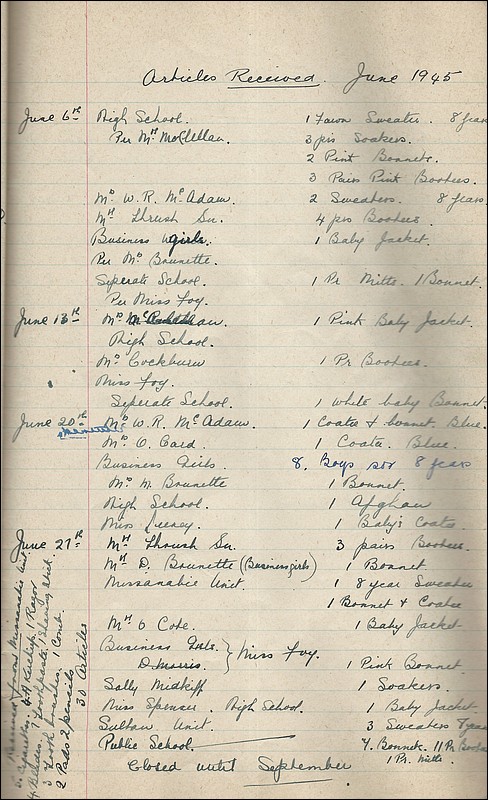 Articles Received. June 1945
June 6th High School. 1 Fawn Sweater. 8 years
Per Mrs McClellan. 3 prs Soakers.
2 Pink Bonnets.
3 Pairs Pink Bootees.
Mrs W. R. McAdam. 2 Sweaters. 8 years
Mrs Thrush Sr. 4 prs Bootees.
Business girls. 1 Baby Jacket.
Per Mrs Brunette.
Seperate School. 1 Pr Mitts. 1 Bonnet.
Per Miss Foy.
June 13th Mrs 1 Pink Baby Jacket.
High School.
Mrs Cockburn 1 Pr Bootees.
Miss Foy.
Seperate School. 1 white baby Bonnet.
June 20th Mrs W. R. McAdam. 1 Coatee & bonnet. Blue.
Mrs O. Card 1 Coatee. Blue.
Business Girls 8. Boys 8 years
Mrs M. Brunette 1 Bonnet.
High School. 1 Afghan
Miss 1 Baby's Coatee
June 27th Mrs Thrush Sr. 3 pairs Bootees.
Mrs D. Brunette (Business girls) 1 Bonnet
Missanabie Unit. 1 8 year Sweater
1 Bonnet & Coatee
Mrs O Cote. 1 Baby Jacket
Business Girls. } Miss Foy.
D. Morris. 1 Pink Bonnet
Sally Midkiff 1 Soakers.
Miss Spencer. High School. 1 Baby Jacket
Sultan Unit. 3 Sweaters 8 years
Public School. 7. Bonnets. 11 Pr Bootees
1 Pr. Mitts.
Closed until September
Received from Missanabie Unit
Cigarettes. 1 Razor
Blades. 7 Toothpaste. Shaving stick.
3 Tooth brushes. 1 Comb.
2 Pads 2 pencils
30 Articles